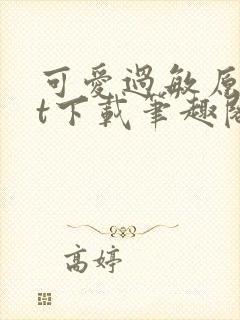 可愛過敏原
t下載筆趣閣
高婷